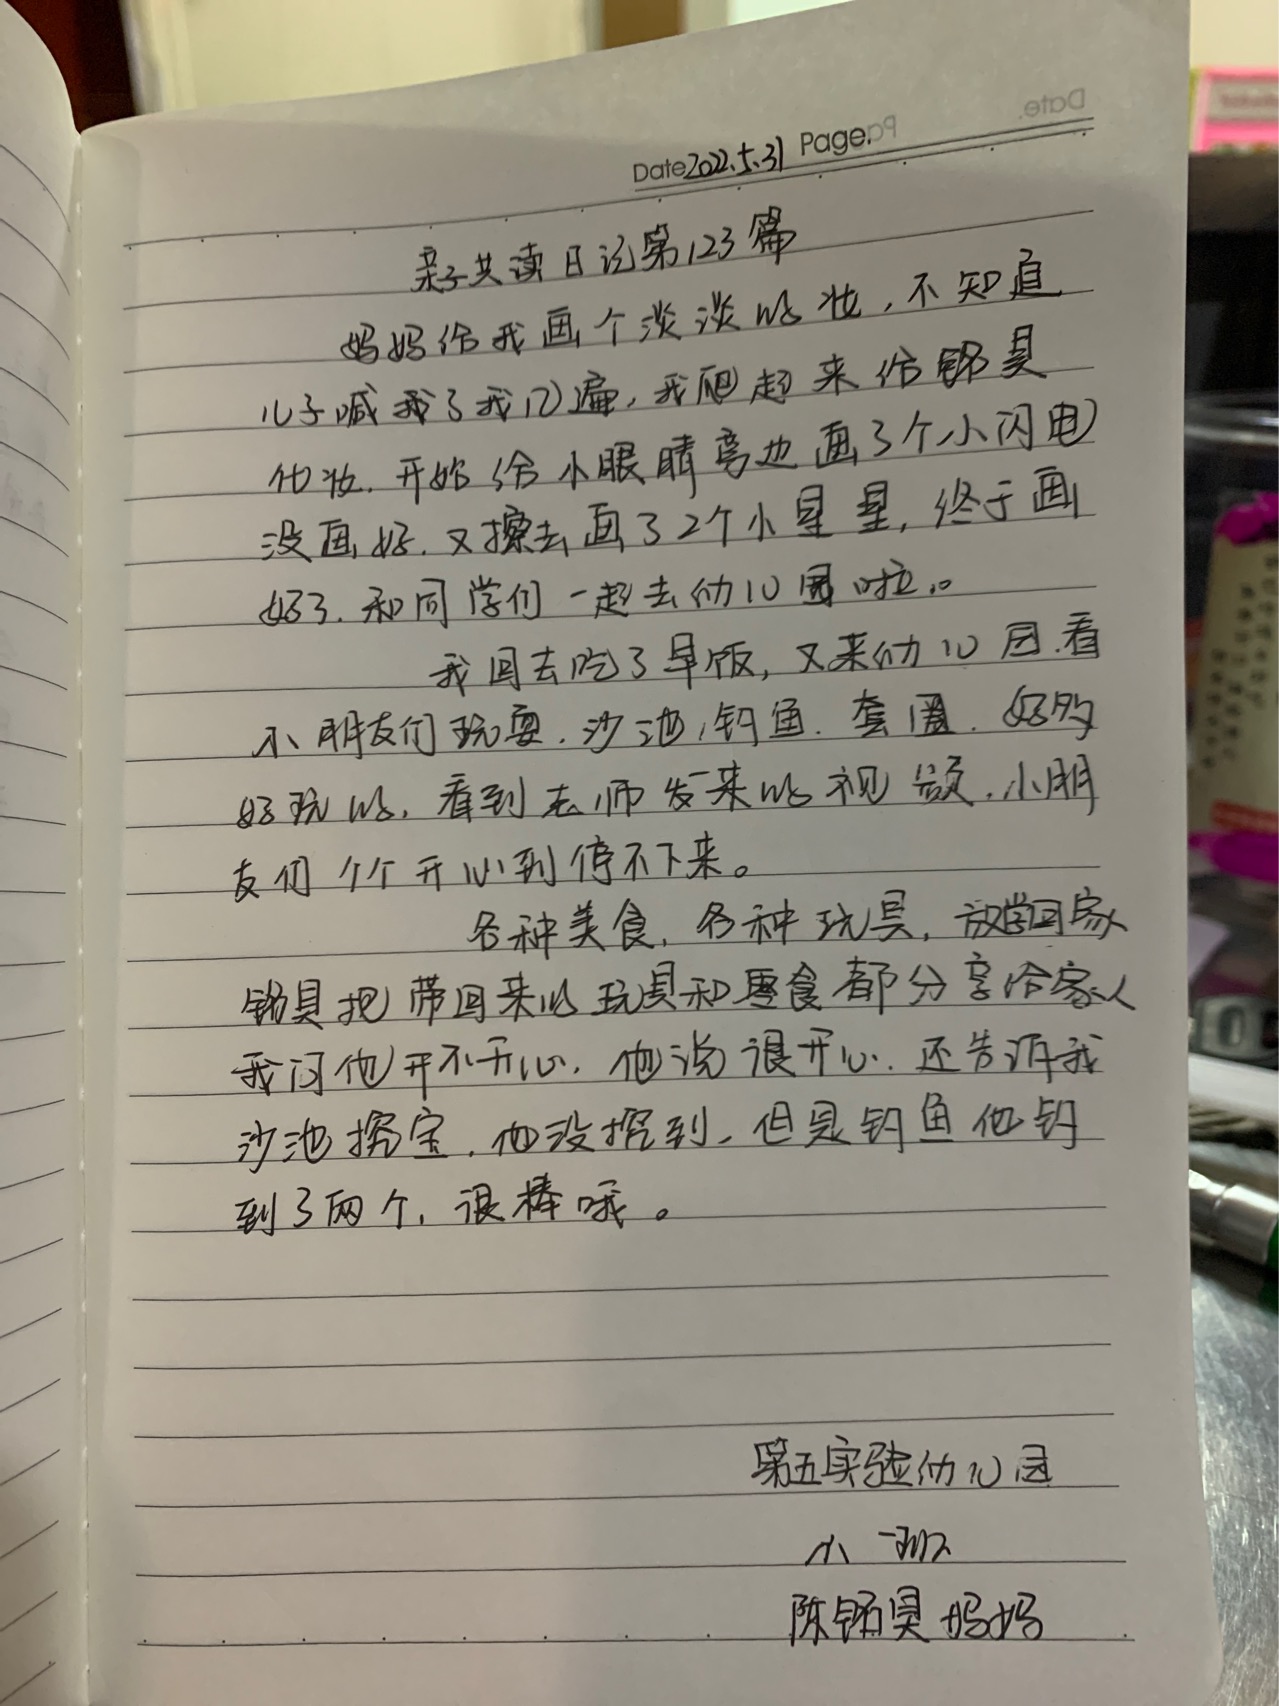 Date 2022.5.31 Page.
亲子共读日记第123篇
妈妈给我画个淡淡的妆，不知道
儿子喊我了我几遍，我爬起来给铭昊
化妆．开始给小眼睛旁边画了个小闪电
没画好．又擦去画了2个小星星，终于画
好了．和同学们一起去幼儿园啦。
我回去吃了早饭，又来幼儿园．看
小朋友们玩耍．沙池，钓鱼．套圈．好多
好玩的，看到老师发来的视频．小朋
友们个个开心到停不下来。
各种美食，各种玩具，放学回家
铭昊把带回来的玩具和零食都分享给家人
我问他开不开心，他说很开心．还告诉我
沙池挖宝．他没挖到，但是钓鱼他钓
到了两个，很棒哦。
第五实验幼儿园
小一班
陈铭昊妈妈